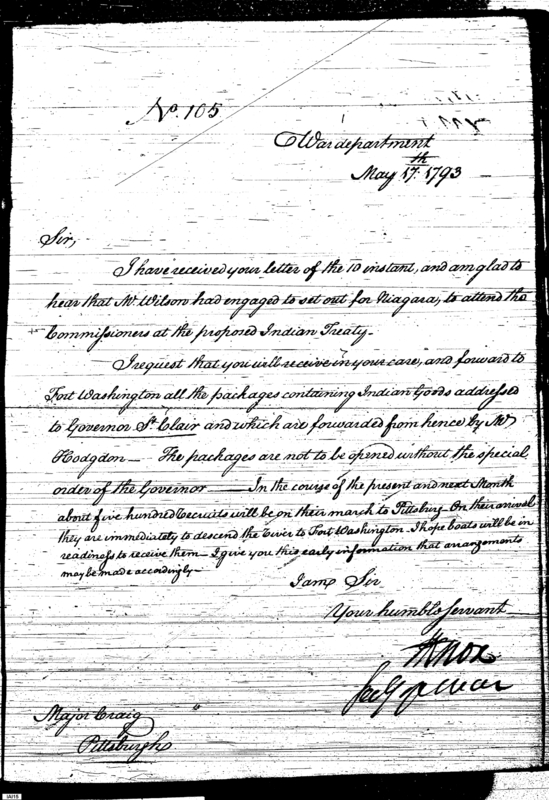 No. 105
War department
May 17.th 1793
Sir,
I have received your letter of the 10 instant, and am glad to
hear that Mr. Wilson had engaged to set out for Niagara, to attend the
Commissioners at the proposed Indian Treaty.
I request that you will receive in your care, and forward to
Fort Washington all the packages containing Indian Goods addressed
to Governor St. Clair and which are forwarded from hence by Mr
Hodgdon — The packages are not to be opened without the special
order of the Governor — In the course of the present and next Month
about five hundred recruits will be on their march to Pittsburg - On their arrival
they are immediately to descend the river to Fort Washington - I hope boats will be in
readiness to receive them - I give you this early information that arrangements
may be made accordingly -
I am Sir
Your humble servant
HKnox
Secy of war
Major Craig
Pittsburgh
IAI15